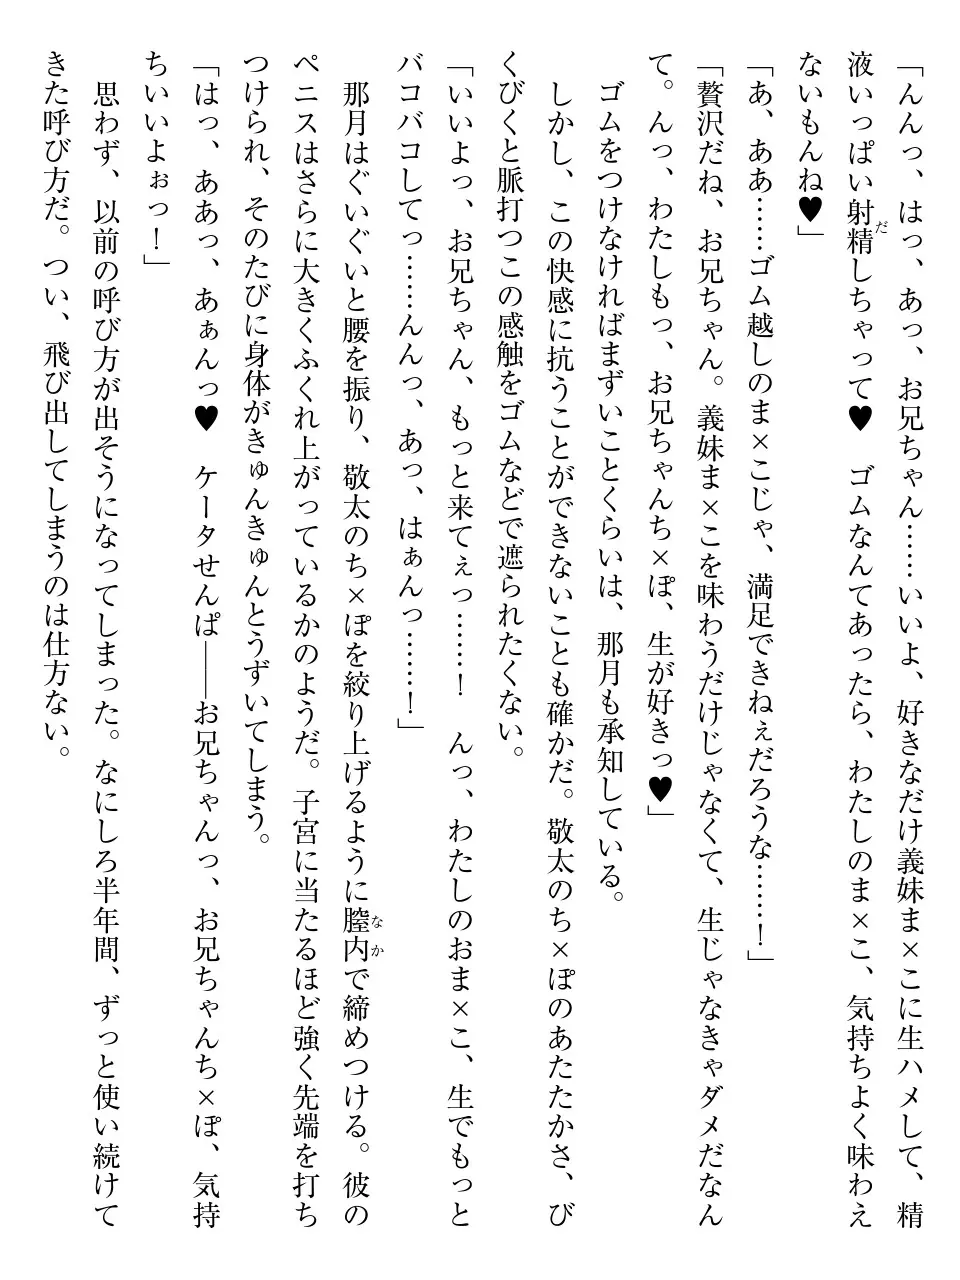 「んんっ、はっ、あっ、お兄ちゃん……いいよ、好きなだけ義妹ま×こに生ハメして、精
液いっぱい射精しちゃって♥　ゴムなんてあったら、わたしのま×こ、気持ちよく味わえ
ないもんね♥」
「あ、ああ……ゴム越しのま×こじゃ、満足できねぇだろうな……！」
「贅沢だね、お兄ちゃん。義妹ま×こを味わうだけじゃなくて、生じゃなきゃダメだなん
て。んっ、わたしもっ、お兄ちゃんち×ぽ、生が好きっ♥」
　ゴムをつけなければまずいことくらいは、那月も承知している。
　しかし、この快感に抗うことができないことも確かだ。敬太のち×ぽのあたたかさ、び
くびくと脈打つこの感触をゴムなどで遮られたくない。
「いいよっ、お兄ちゃん、もっと来てぇっ……！　んっ、わたしのおま×こ、生でもっと
バコバコしてっ……んんっ、あっ、はぁんっ……！」
　那月はぐいぐいと腰を振り、敬太のち×ぽを絞り上げるように膣内で締めつける。彼の
ペニスはさらに大きくふくれ上がっているかのようだ。子宮に当たるほど強く先端を打ち
つけられ、そのたびに身体がきゅんきゅんとうずいてしまう。
「はっ、ああっ、あぁんっ♥　ケータせんぱ――お兄ちゃんっ、お兄ちゃんち×ぽ、気持
ちいいよぉっ！」
　思わず、以前の呼び方が出そうになってしまった。なにしろ半年間、ずっと使い続けて
きた呼び方だ。つい、飛び出してしまうのは仕方ない。